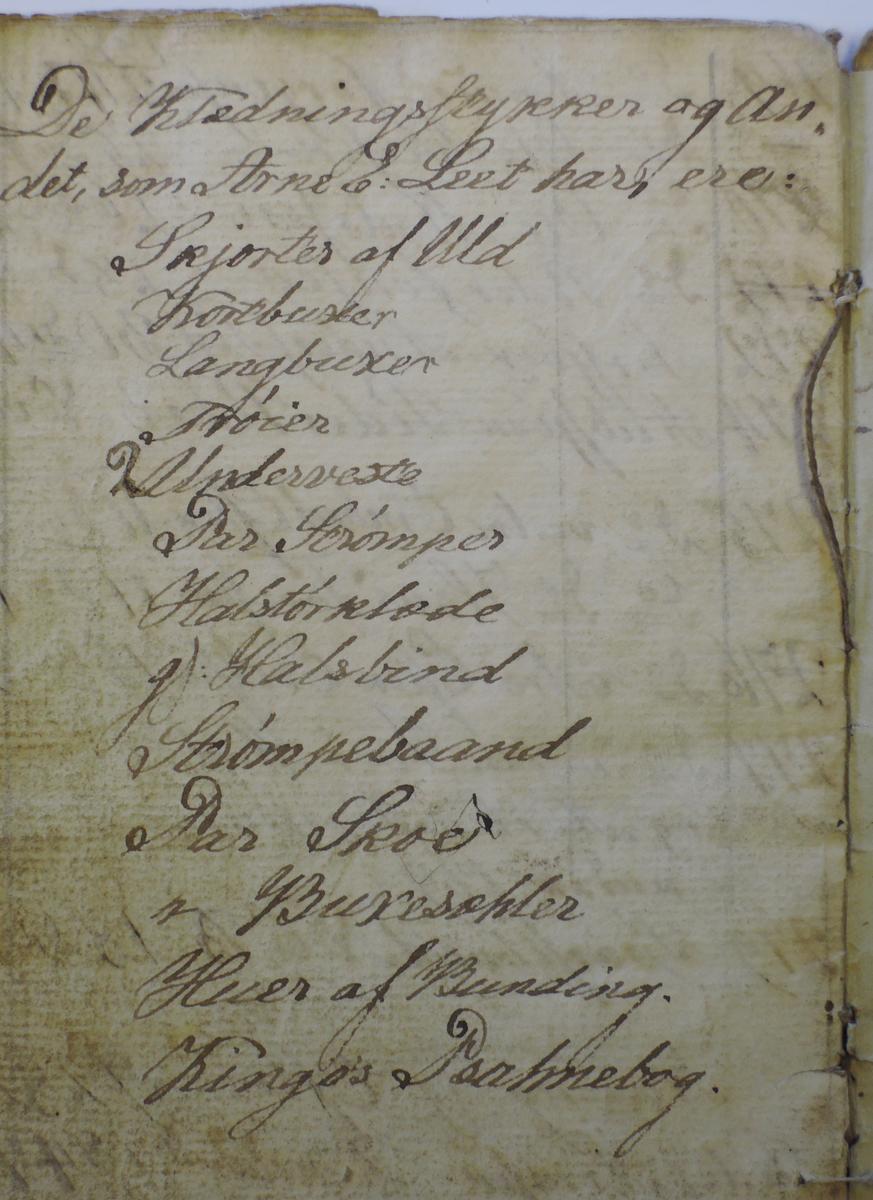 De Klædningsstykker og An,
det, som Arne E: Leet har, ere:
Skjorter af Uld
Kortbuxer
Langbuxer
Tróier
2 Underveste
Par Strómper
Halstórklæde
g): Halsbind
Strømpebaand
Par Skoe
" Buxesæhler
Huer af Bunding.
Kingos Psalmebog.